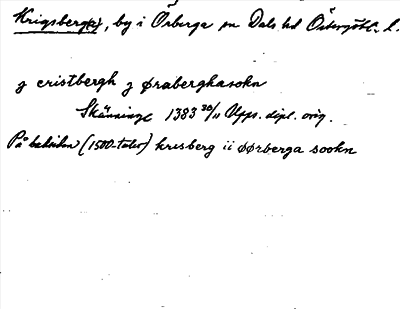 Krigsberg(a), by i Örberga sn Dals hd Östergötl. l.
ʒ cristbergh ʒ øraberghasokn
Skänninge 1383 30/11 Upps. dipl. orig.
På baksidan (1500-talet) krisberg ii øørberga sookn